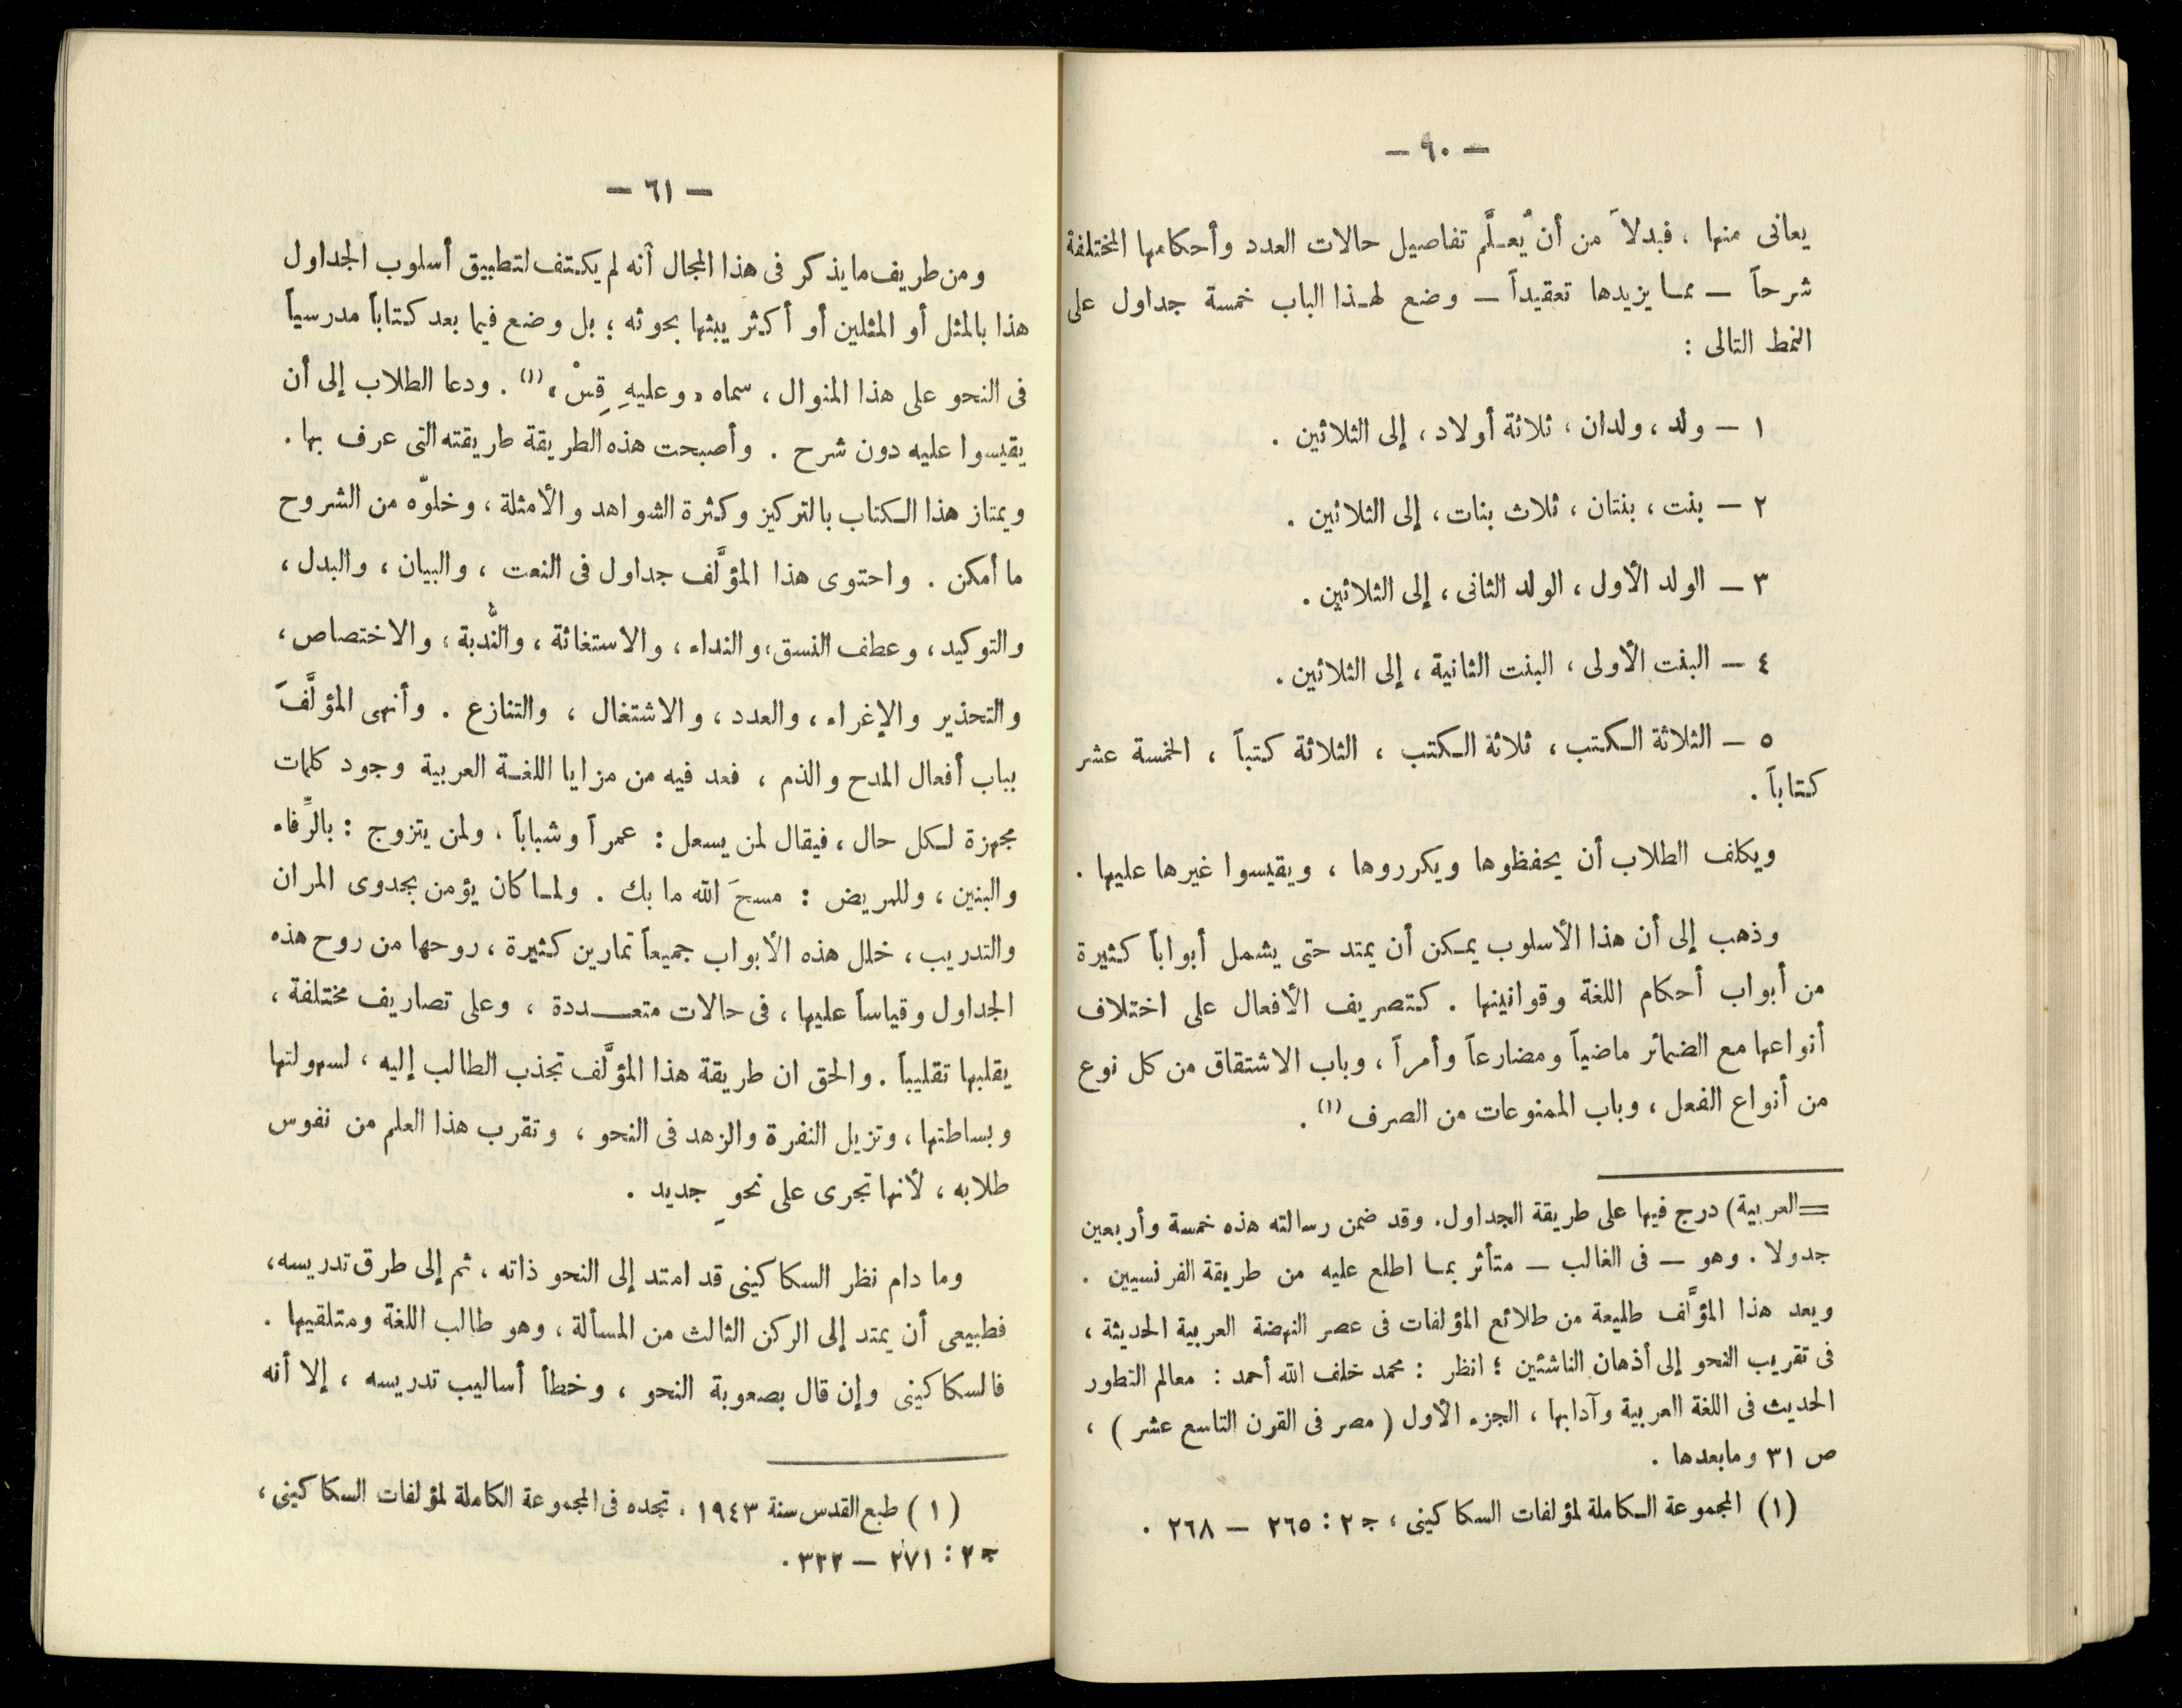 — ٦٠ —
يعانى منها ، فبدلاً من أن يُعـلَّم تفاصيل حالات العدد وأحكامها المختلفة
شرحاً — ممـا يزيدها تعقيداً — وضع لهـذا الباب خمسة جداول على
النمط التالى :
١ — ولد ، ولدان ، ثلاثة أولاد ، إلى الثلاثين .
٢ — بنت ، بنتان ، ثلاث بنات ، إلى الثلاثين .
٣ — الولد الأول ، الولد الثانى ، إلى الثلاثين .
٤ — البنت الأولى ، البنت الثانية ، إلى الثلاثين .
٥ — الثلاثة الـكتب ، ثلاثة الـكتب ، الثلاثة كتباً ، الخمسة عشر
كتاباً .
ويكلف الطلاب أن يحفظوها ويكرروها ، ويقيسوا غيرها عليها .
وذهب إلى أن هذا الأسلوب يمـكن أن يمتد حتى يشمل أبواباً كثيرة
من أبواب أحكام اللغة وقوانينها . كتصريف الأفعال على اختلاف
أنواعها مع الضمائر ماضياً ومضارعاً وأمراً ، وباب الاشتقاق من كل نوع
من أنواع الفعل ، وباب الممنوعات من الصرف (١) .
=العربية) درج فيها على طريقة الجداول. وقد ضمن رسالته هذه خمسة وأربعين
جدولا . وهو — فى الغالب — متأثر بمـا اطلع عليه من طريقة الفرنسيين .
ويعد هذا المؤلَّف طليعة من طلائع المؤلفات فى عصر النهضة العربية الحديثة ،
فى تقريب النحو إلى أذهان الناشئين ؛ انظر : محمد خلف الله أحمد : معالم التطور
الحديث فى اللغة العربية وآدابها ، الجزء الأول ( مصر فى القرن التاسع عشر ) ،
ص ٣١ ومابعدها .
(١) المجموعة الـكاملة لمؤلفات السكاكينى ، ج ٢ : ٢٦٥ — ٢٦٨ .
— ٦١ —
ومن طريف ما يذكر فى هذا المجال أنه لم يكـتف لتطبيق أسلوب الجداول
هذا بالمثل أو المثلين أو أكثر يبثها بحوثه ؛ بل وضع فيما بعد كتاباً مدرسياً
فى النحو على هذا المنوال ، سماه « وعليهِ قِسْ » (١) . ودعا الطلاب إلى أن
يقيسوا عليه دون شرح . وأصبحت هذه الطريقة طريقته التى عرف بها .
ويمتاز هذا الـكتاب بالتركيز وكثرة الشواهد والأمثلة ، وخلوّه من الشروح
ما أمكن . واحتوى هذا المؤلَّف جداول فى النعت ، والبيان ، والبدل ،
والتوكيد ، وعطف النسق ، والنداء ، والاستغاثة ، والنُّدبة ، والاختصاص ،
والتحذير والإغراء ، والعدد ، والاشتغال ، والتنازع . وأنهى المؤلَّفَ
بباب أفعال المدح والذم ، فعد فيه من مزايا اللغـة العربية وجود كلمات
مجهزة لـكل حال ، فيقال لمن يسعل : عمراً وشباباً ، ولمن يتزوج : بالرِّفاء
والبنين ، وللمريض : مسحَ الله ما بك . ولمـا كان يؤمن بجدوى المران
والتدريب ، خلل هذه الأبواب جميعاً تمارين كثيرة ، روحها من روح هذه
الجداول وقياساً عليها ، فى حالات متعـــددة ، وعلى تصاريف مختلفة ،
يقلبها تقليباً . والحق ان طريقة هذا المؤلَّف تجذب الطالب إليه ، لسهولتها
وبساطتها ، وتزيل النفرة والزهد فى النحو ، وتقرب هذا العلم من نفوس
طلابه ، لأنها تجرى على نحوٍ جديد .
وما دام نظر السكاكينى قد امتد إلى النحو ذاته ، ثم إلى طرق تدريسه ،
فطبيعى أن يمتد إلى الركن الثالث من المسألة ، وهو طالب اللغة ومتلقيها .
فالسكاكينى وإن قال بصعوبة النحو ، وخطأ أساليب تدريسه ، إلا أنه
( ١ ) طبع القدس سنة ١٩٤٣ . تجده فى المجموعة الكاملة لمؤلفات السكاكينى ،
ج ٢ : ٢٧١ — ٣٢٢ .